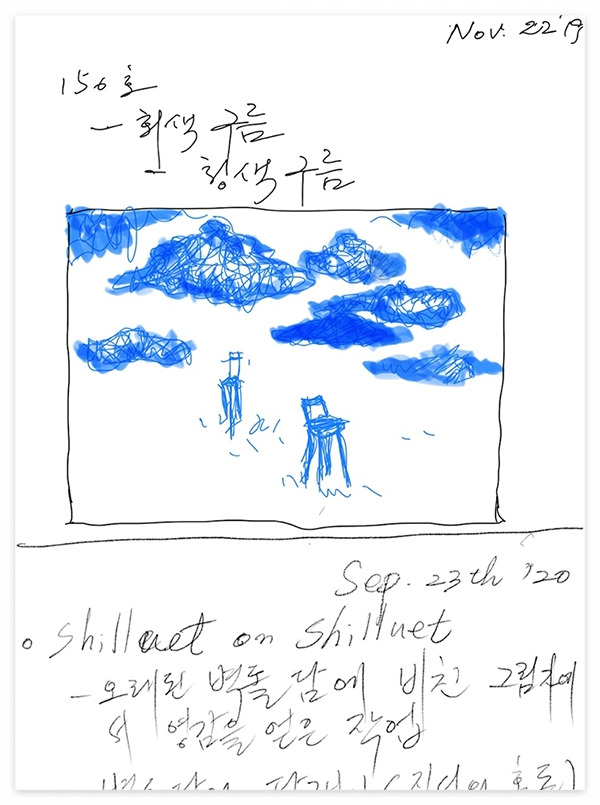 Nov. 22 '19
150호
- 회색 구름
- 청색 구름
Sep. 23th '20
○ shilluet on shilluet
- 오래된 벽돌 담에 비친 그림자에
서 영감을 얻은 작업